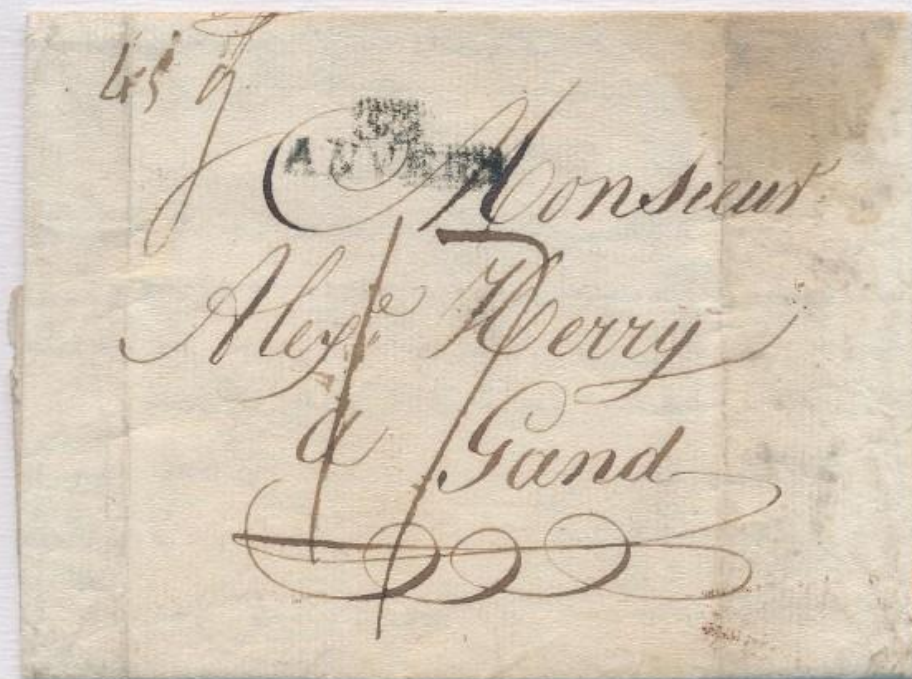 45 g
93
ANVERS
Monsieur
Alexe Herry
a Gand
17